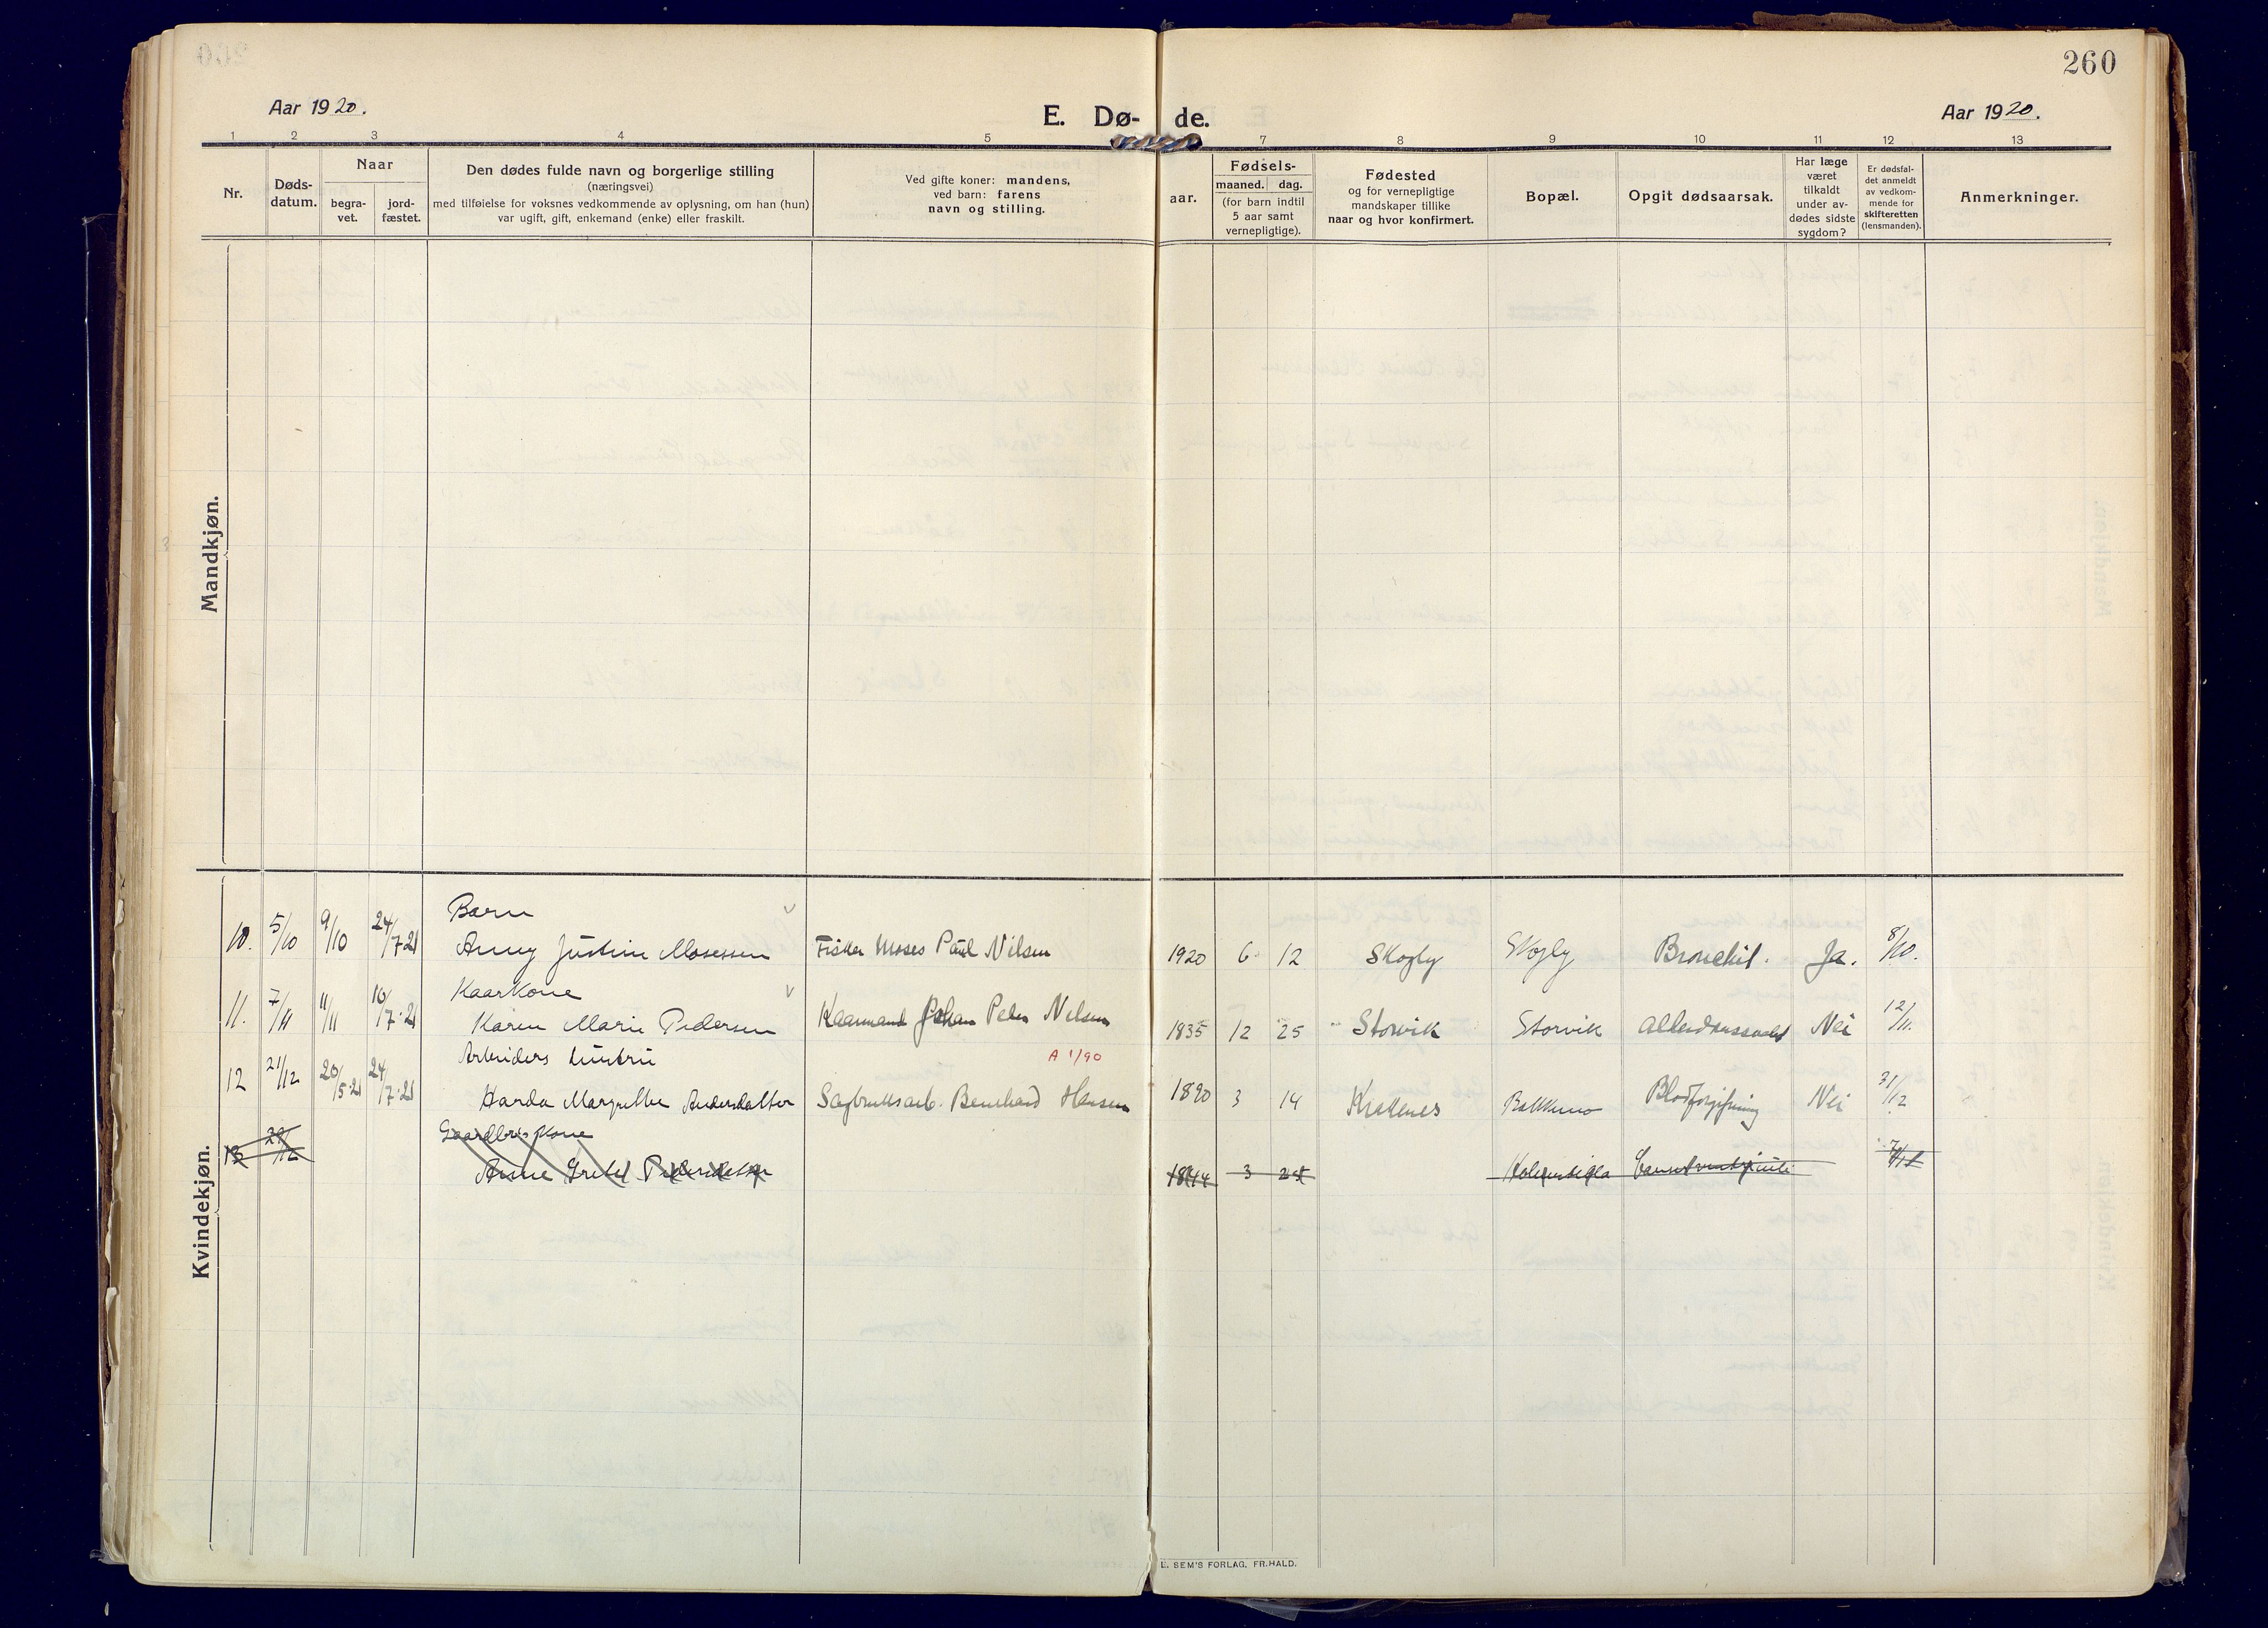 260
Aar 1920.
E. Dø-
de.
Aar 1920.
1 2 3 4 5 7 8 9 10 11 12 13
Nr.
Døds-
datum.
Naar
begra-
vet.
jord-
fæstet.
Den dødes fulde navn og borgerlige stilling
(næringsvei)
med tilføielse for voksnes vedkommende av oplysning, om han (hun)
var ugift, gift, enkemand (enke) eller fraskilt.
Ved gifte koner: mandens,
ved barn: farens
navn og stilling.
aar.
Fødsels-
maaned. dag.
(for barn indtil
5 aar samt
vernepligtige).
Fødested
og for vernepligtige
mandskaper tillike
naar og hvor konfirmert.
Bopæl.
Opgit dødsaarsak.
Har læge
været
tilkaldt
under av-
dødes sidste
sygdom?
Er dødsfal-
det anmeldt
av vedkom-
mende for
skifteretten
(lensmanden).
Anmerkninger.
Mandkjøn.
Kvindekjøn.
Barn
10. 5/10 9/10 24/7-21 Anny Justine Mosessen Fisker Moses Paul Nilsen 1920 6 12 Skogly Skogly Bronchit. Ja. 8/10.
Kaarkone
11. 7/11 11/11 10/7-21 Karen Marie Pedersen Kaarmand Johan Peder Nilsen 1835 12 25 Storvik Storvik Nei 12/11.
Arbeiders hustru
A 1/90
12 21/12 20/5-21 24/7-21 Harda Margrethe Andersdatter Sagbruksarb. Bernhard Hansen 1890 3 14 Krakenes Bakkemo Blodforgiftning Nei 31/12
Gaardbr. kone
13 29/12 Anne Gretel Pedersdatter 1844 3 25
E. SEM'S FORLAG, FR.HALD.